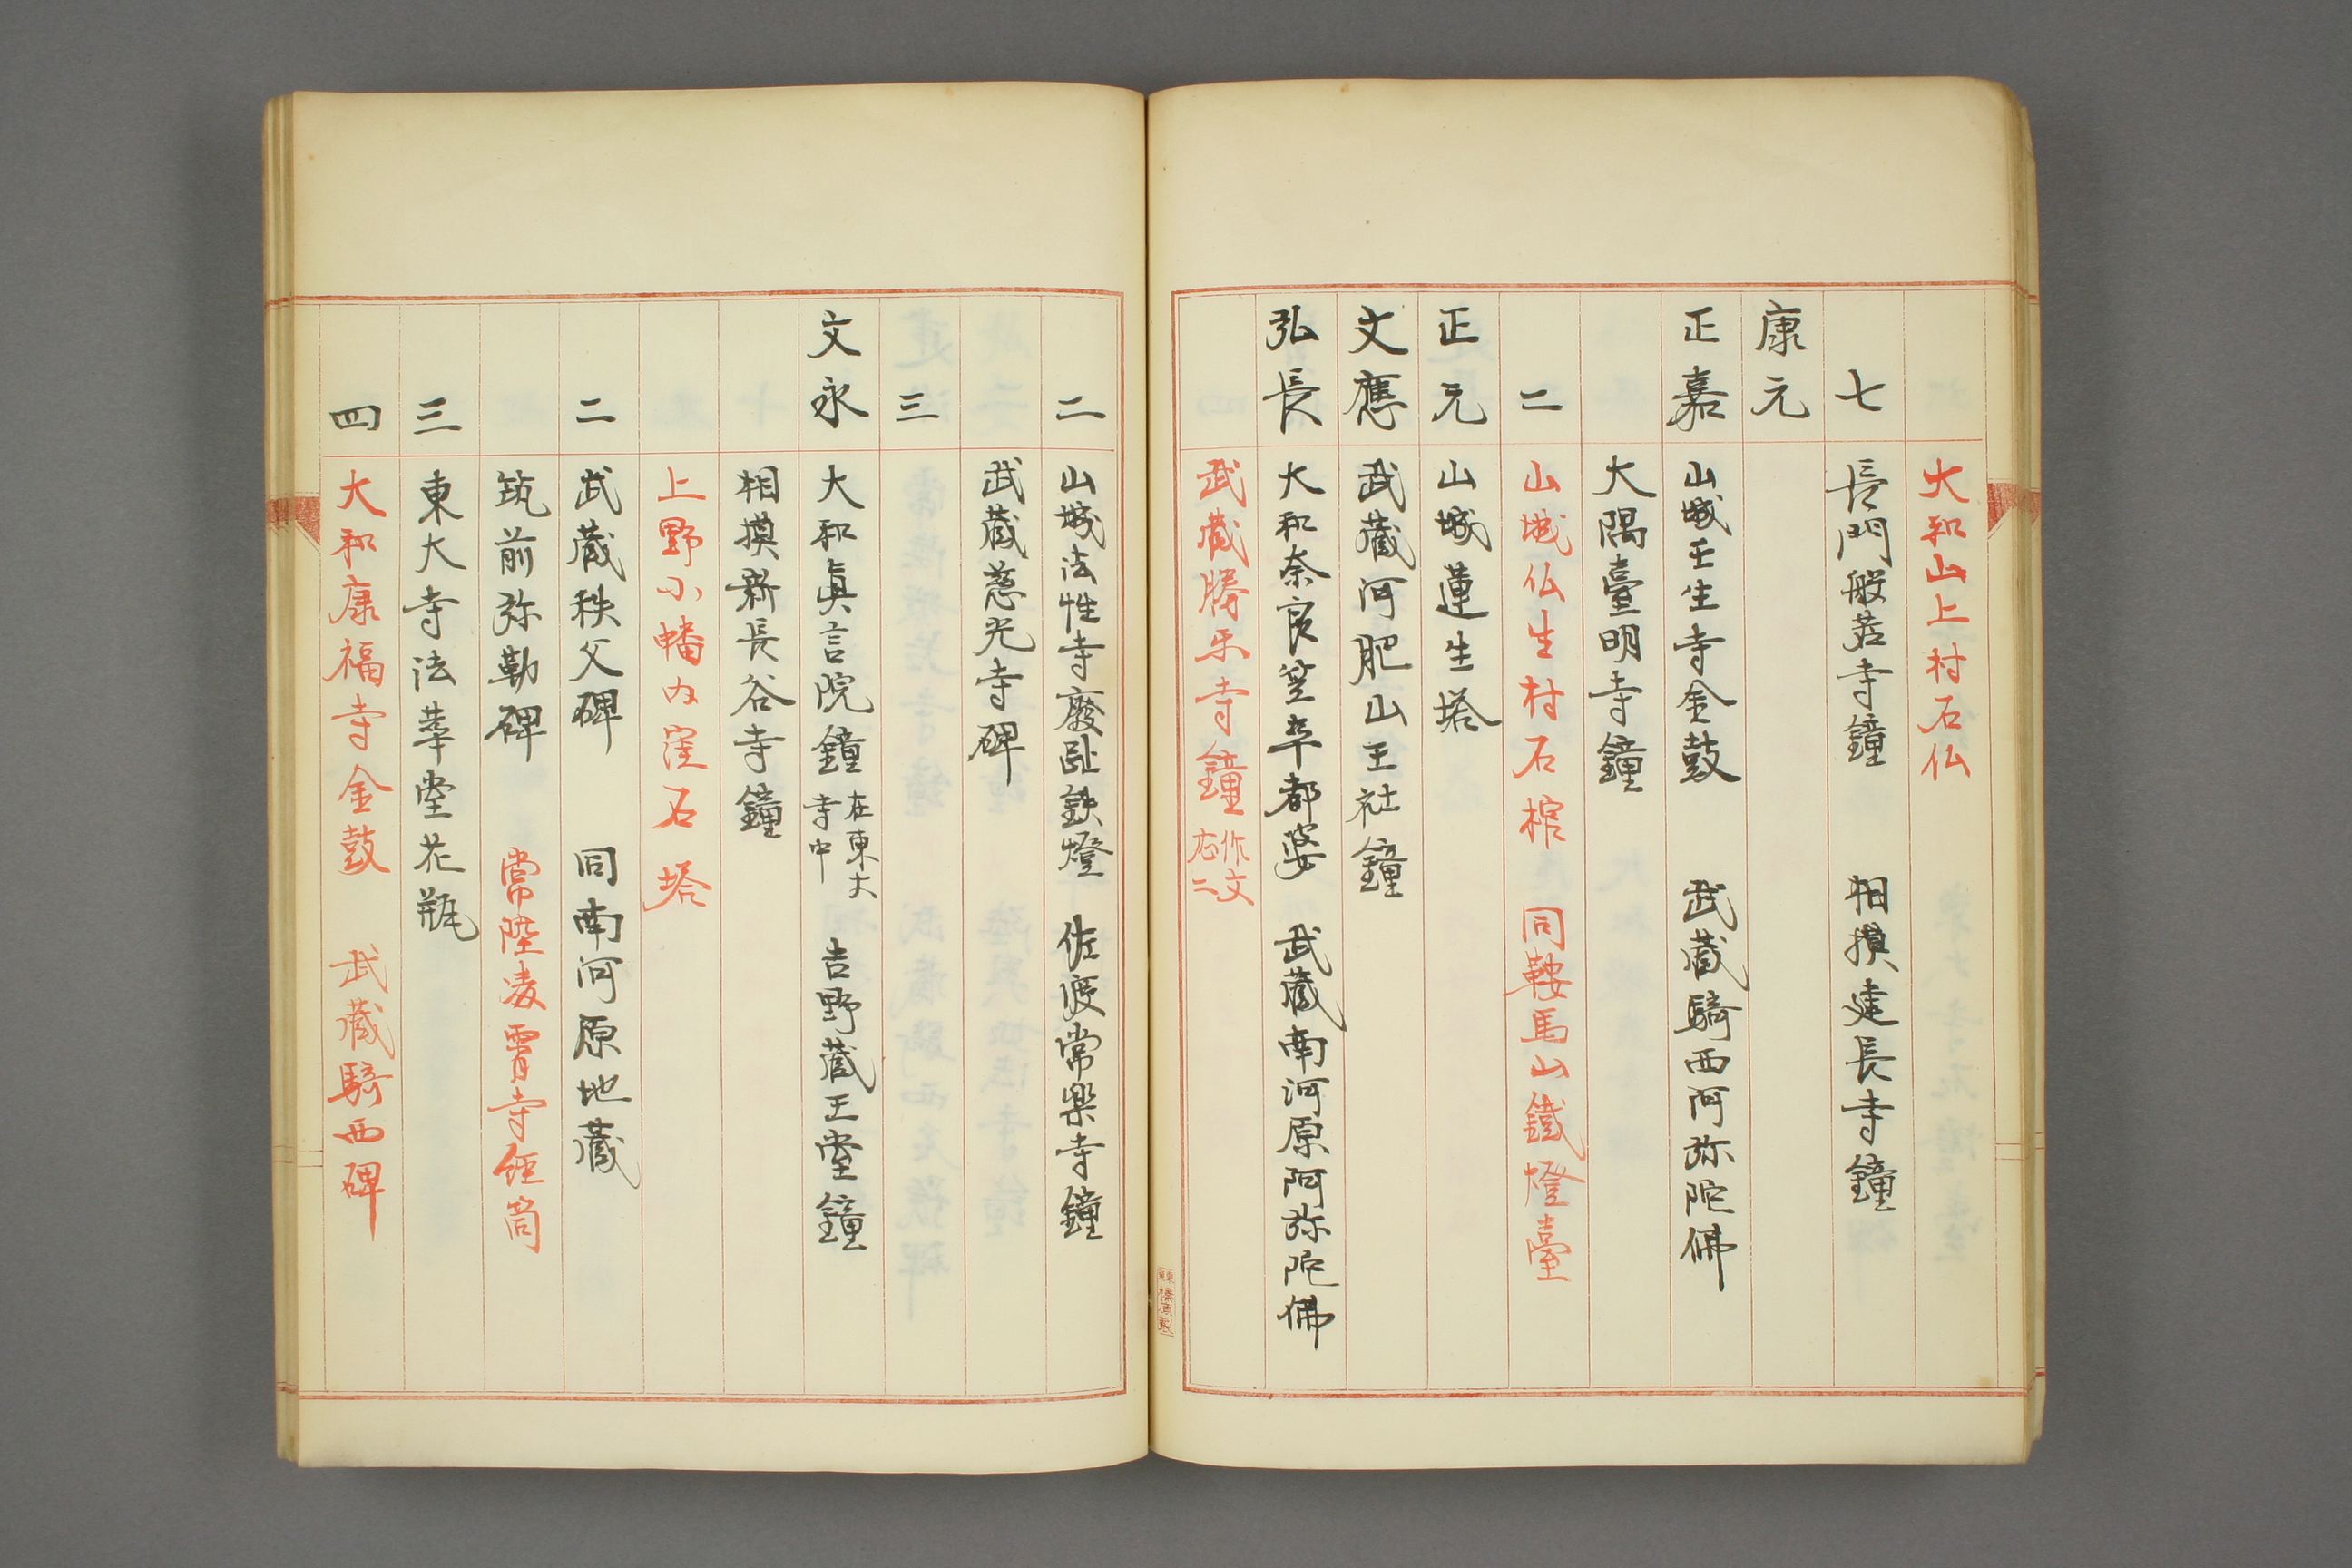 大和山上村石仏
七 長門般若寺鐘 相摸建長寺鐘
康元
正嘉 山城壬生寺金鼓 武蔵騎西阿弥陀佛
大隅臺明寺鐘
二 山城仏生村石棺 同鞍馬山鐵燈臺
正元 山城蓮生塔
文應 武蔵河肥山王社鐘
弘長 大和奈良笠卒都婆 武蔵南河原阿弥陀佛
武蔵勝乐寺鐘 作文応二
二 山城法性寺廢趾鉄燈 佐渡常樂寺鐘
武蔵慈光寺碑
三
文永 大和眞言院鐘 在東大寺中 吉野蔵王堂鐘
相摸新長谷寺鐘
上野小幡内窪石塔
二 武蔵秩父碑 同南河原地蔵
筑前弥勒碑 常陸凌霄寺経筒
三 東大寺法華堂花瓶
四 大和康福寺金鼓 武蔵騎西碑